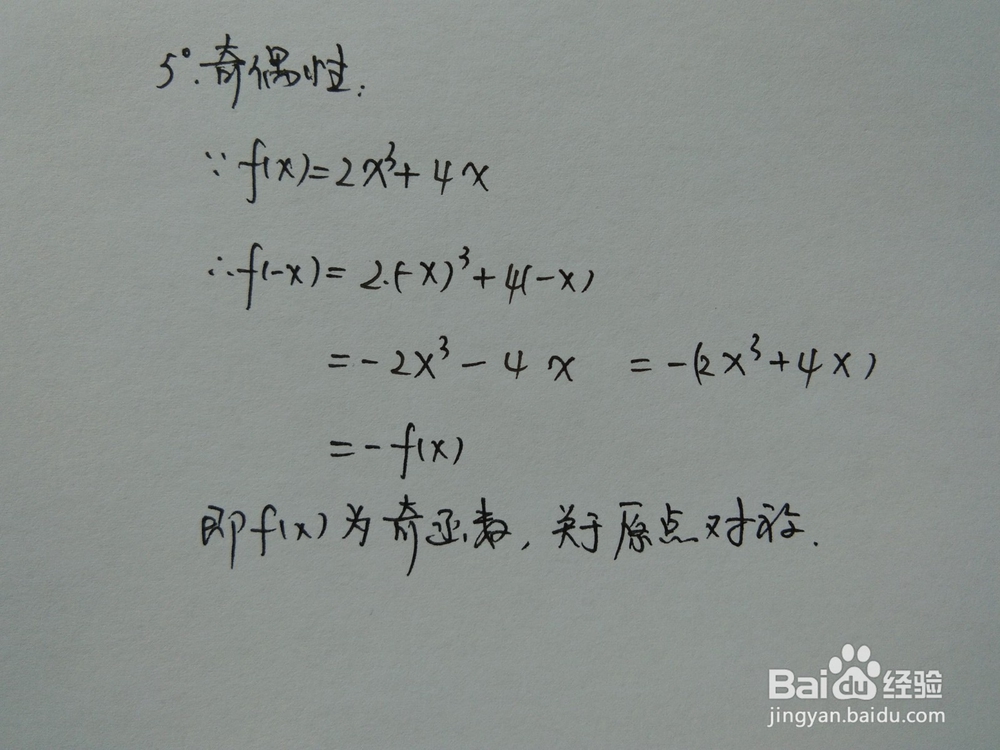 5°.奇偶性:
∵f(x)=2x³+4x
∴f(-x)=2·(-x)³+4(-x)
=-2x³-4x =-(2x³+4x)
=-f(x)
即f(x)为奇函数,关于原点对称.
Baidu经验
jingyan.baidu.com